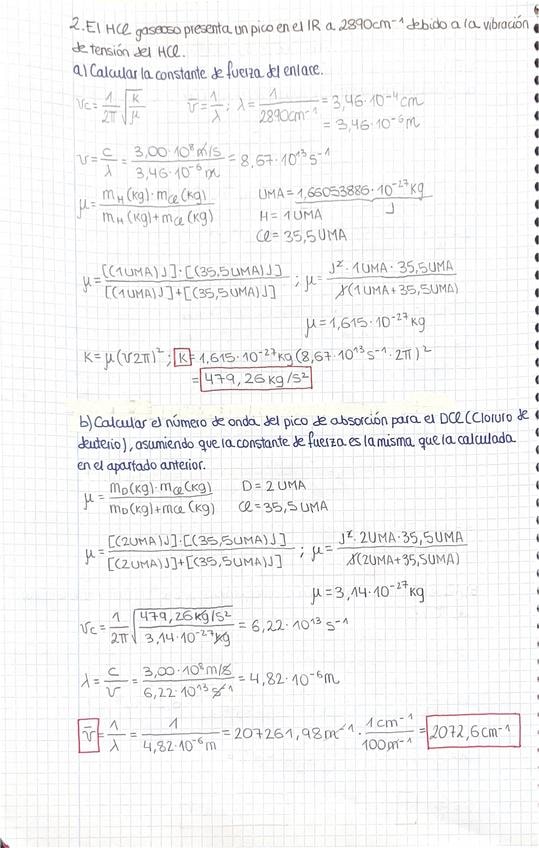 2. El HCl gaseoso presenta un pico en el IR a 2890cm⁻¹ debido a la vibración
de tensión del HCl.
a) Calcular la constante de fuerza del enlace.
νc = 1/2π √(K/μ)   ν̄ = 1/λ ; λ = 1/2890cm⁻¹ = 3,46·10⁻⁴cm
= 3,46·10⁻⁶m
ν = c/λ = 3,00·10⁸m/s / 3,46·10⁻⁶m = 8,67·10¹³s⁻¹
μ = mH(kg)·mCl(kg) / mH(kg)+mCl(kg)   UMA = 1,66053886·10⁻²⁷kg
J
H = 1UMA
Cl = 35,5UMA
μ = [(1UMA)J]·[(35,5UMA)J] / [(1UMA)J]+[(35,5UMA)J] ; μ = J²·1UMA·35,5UMA / J(1UMA+35,5UMA)
μ = 1,615·10⁻²⁷kg
K = μ(ν2π)² ; K = 1,615·10⁻²⁷kg(8,67·10¹³s⁻¹·2π)²
= 479,26kg/s²
b) Calcular el número de onda del pico de absorción para el DCl (Cloruro de
deuterio), asumiendo que la constante de fuerza es la misma que la calculada
en el apartado anterior.
μ = mD(kg)·mCl(kg) / mD(kg)+mCl(kg)   D = 2UMA
Cl = 35,5UMA
μ = [(2UMA)J]·[(35,5UMA)J] / [(2UMA)J]+[(35,5UMA)J] ; μ = J²·2UMA·35,5UMA / J(2UMA+35,5UMA)
μ = 3,14·10⁻²⁷kg
νc = 1/2π √(479,26kg/s² / 3,14·10⁻²⁷kg) = 6,22·10¹³s⁻¹
λ = c/ν = 3,00·10⁸m/s / 6,22·10¹³s⁻¹ = 4,82·10⁻⁶m
ν̄ = 1/λ = 1/4,82·10⁻⁶m = 207261,98m⁻¹ · 1cm⁻¹/100m⁻¹ = 2072,6cm⁻¹